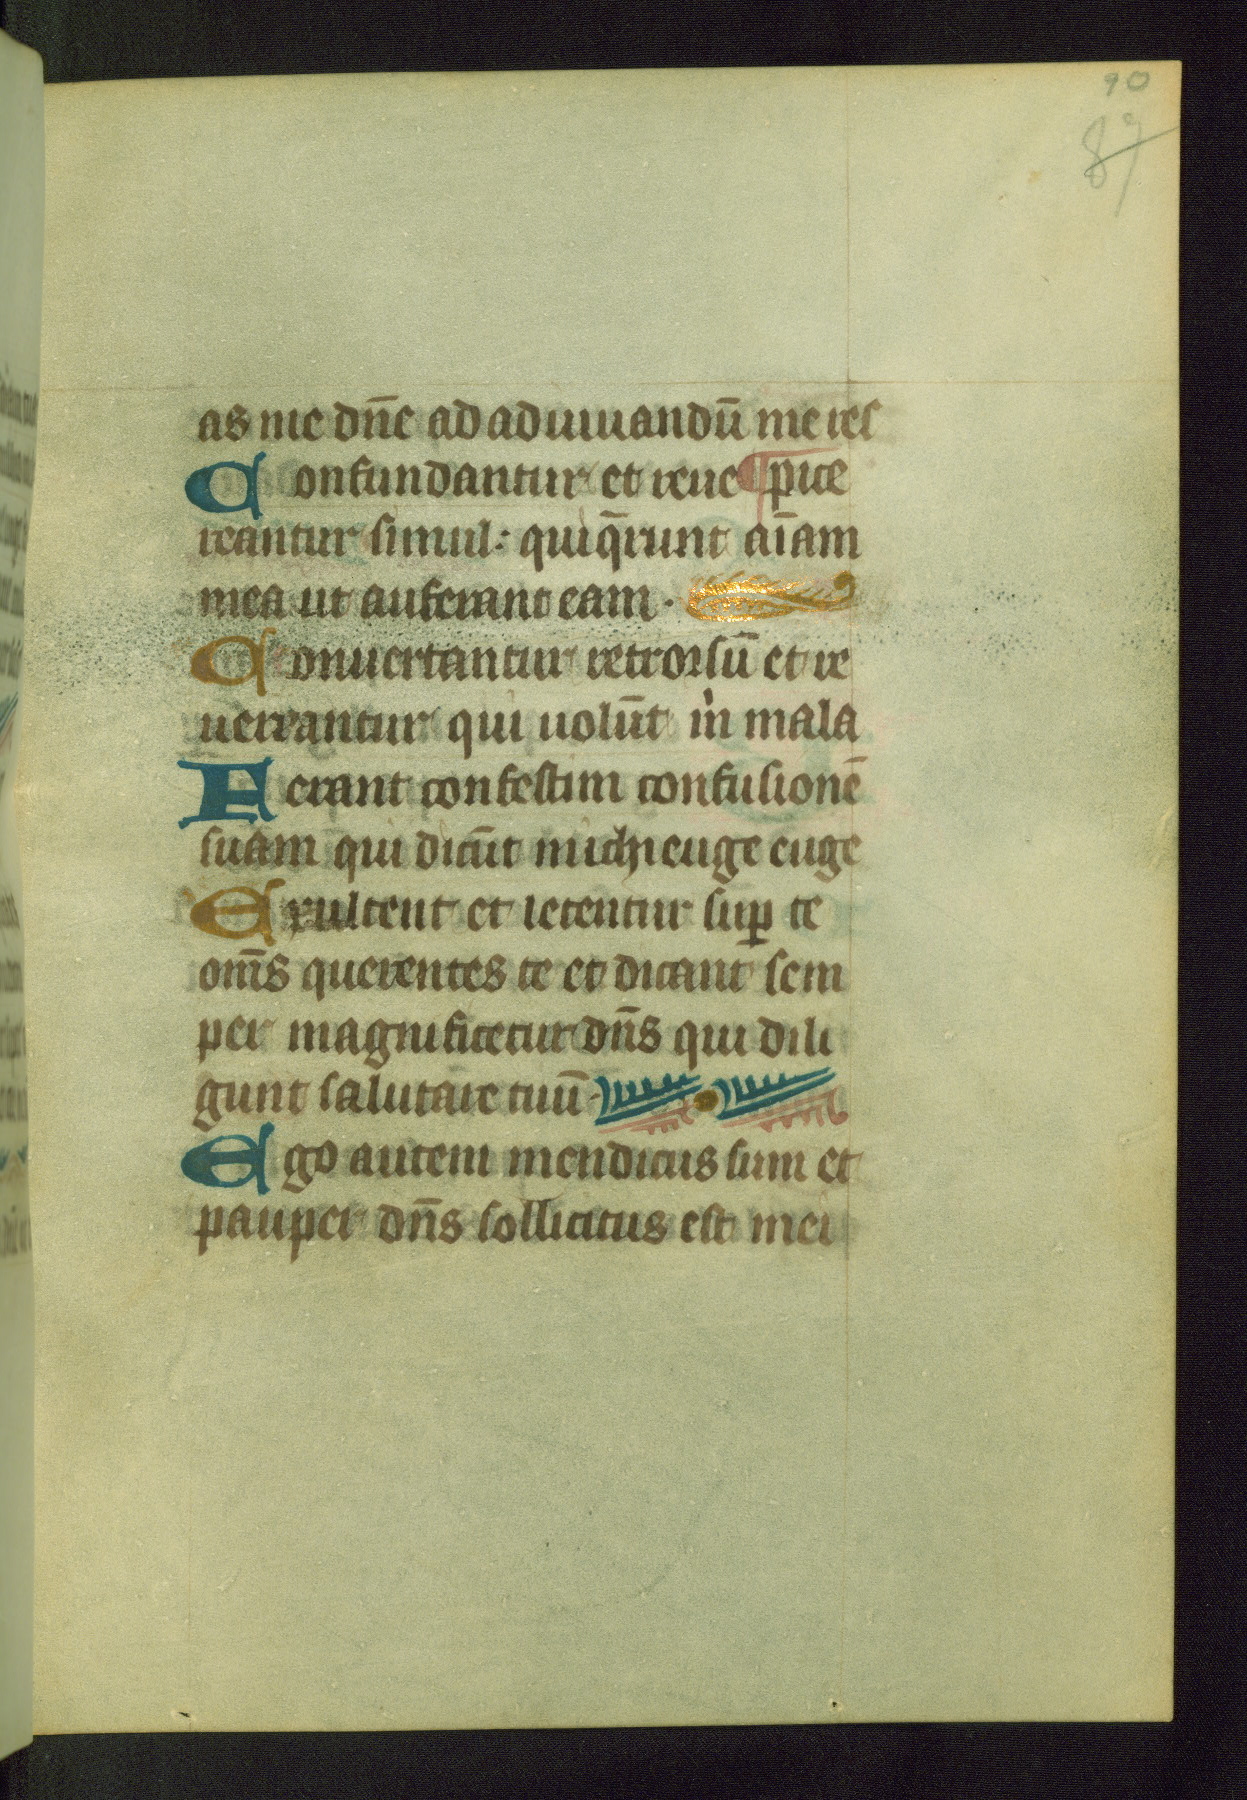 90
87
as me dn̄e ad adiuuandū me res
Confundantur et reue ¶pice
reantur simul: qui q̄runt aīam
mea ut auferant eam.
Conuertantur retrorsū et re
uereantur qui uolūt m̍ mala
Ferant confestim confusionē
suam qui dicūt michi euge euge
Exultent et letentur suꝑ te
om̄s querentes te et dicant sem
per magnificetur dn̄s qui dili
gunt salutare tuū.
Ego autem mendicus sum et
pauper dn̄s sollicitus est mei